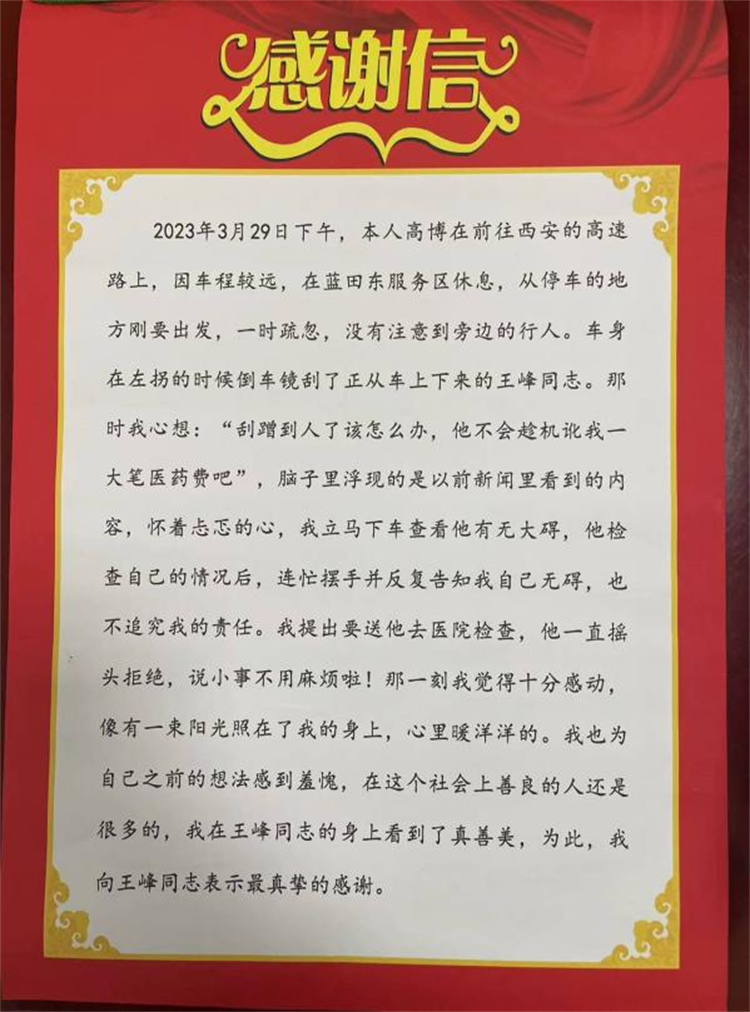 感谢信
2023年3月29日下午，本人高博在前往西安的高速
路上，因车程较远，在蓝田东服务区休息，从停车的地
方刚要出发，一时疏忽，没有注意到旁边的行人。车身
在左拐的时候倒车镜刮了正从车上下来的王峰同志。那
时我心想：“刮蹭到人了该怎么办，他不会趁机讹我一
大笔医药费吧”，脑子里浮现的是以前新闻里看到的内
容，怀着忐忑的心，我立马下车查看他有无大碍，他检
查自己的情况后，连忙摆手并反复告知我自己无碍，也
不追究我的责任。我提出要送他去医院检查，他一直摇
头拒绝，说小事不用麻烦啦！那一刻我觉得十分感动，
像有一束阳光照在了我的身上，心里暖洋洋的。我也为
自己之前的想法感到羞愧，在这个社会上善良的人还是
很多的，我在王峰同志的身上看到了真善美，为此，我
向王峰同志表示最真挚的感谢。